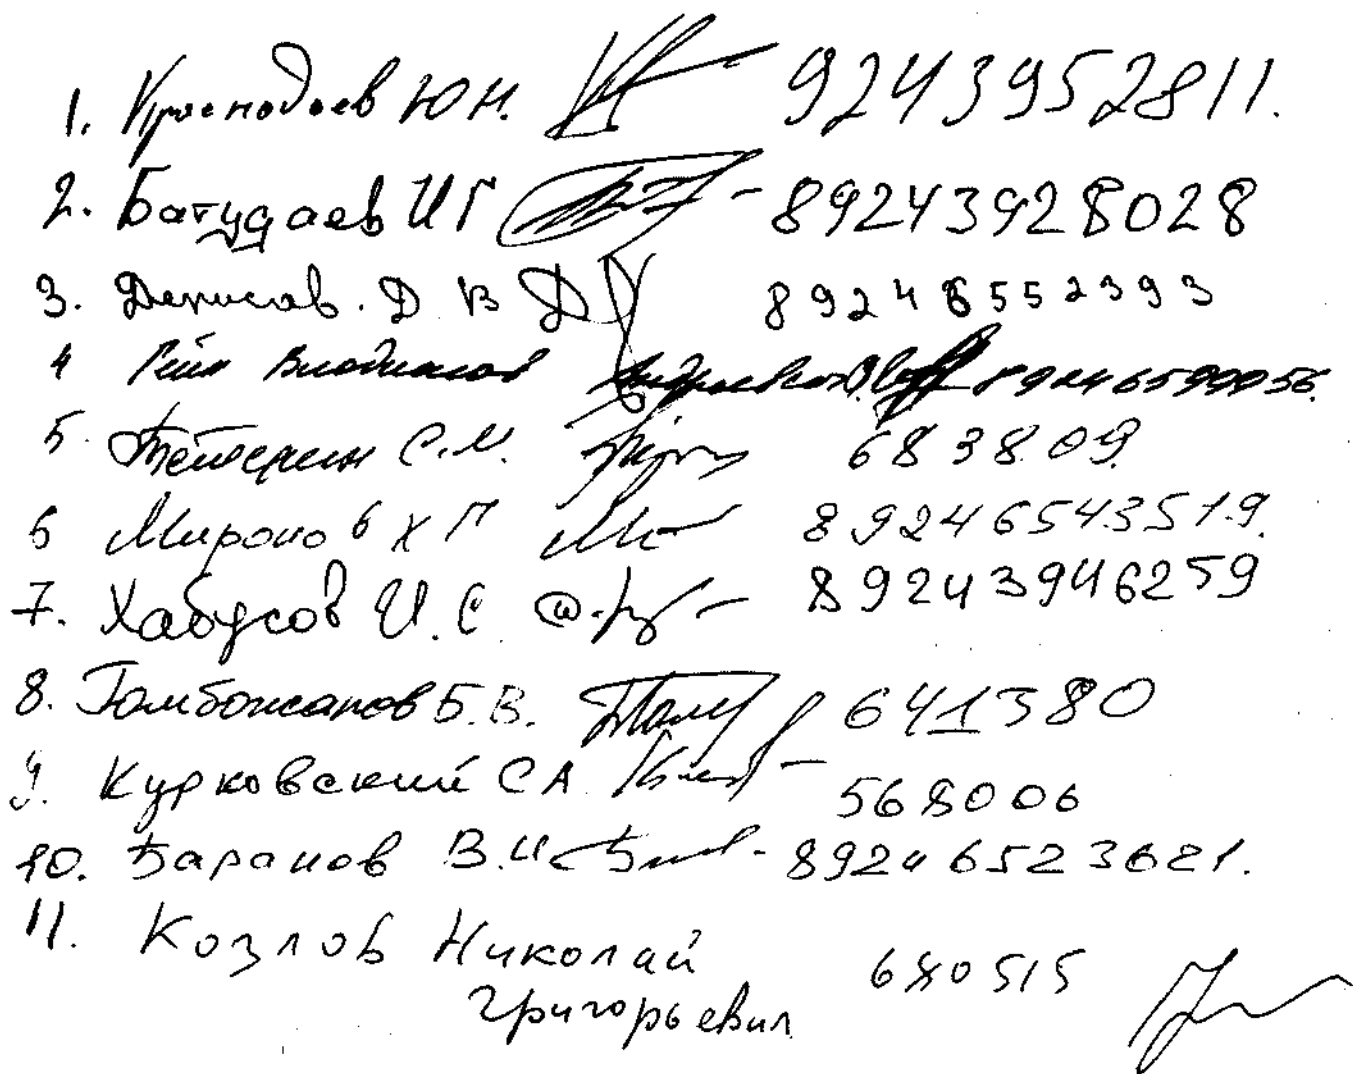 1. Краснодаев Ю Н. 9243952811.
2. Батудаев И Г - 89243928028
3. Денисов. Д В 89246552393
4 Гейл Владимир 89246599956.
5. Тетерин С.М. 683809.
6 Миронов Х П 89246543519.
7. Хабусов И. С. 89243946259
8. Гомбожапов Б.В. 641380
9. Курковский С А - 568006
10. Баранов В.И. - 89246523621.
11. Козлов Николай 680515
Григорьевич